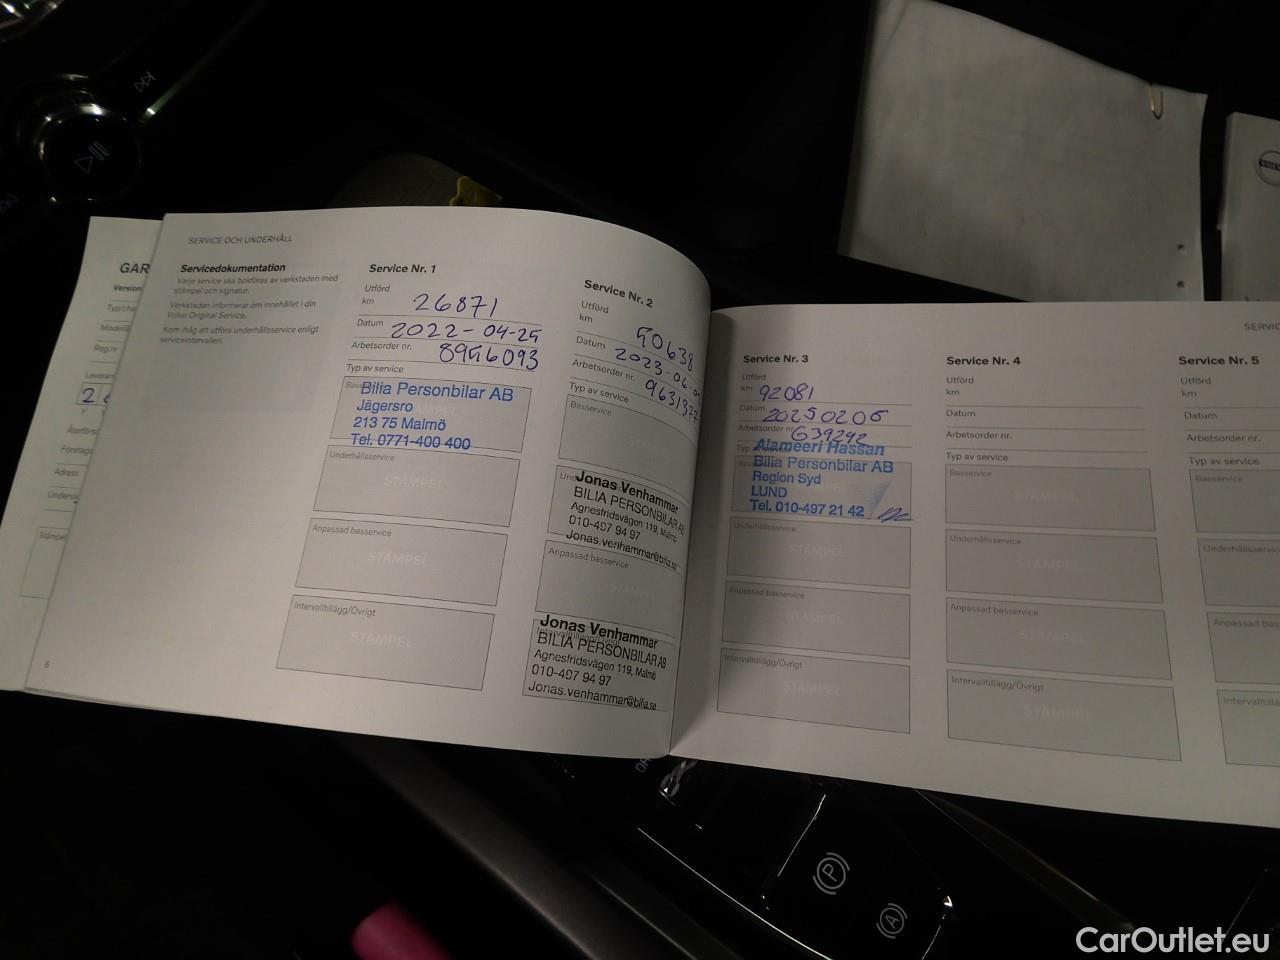 GAR
Version
Reg.nr
SERVICE OCH UNDERHÅLL
Servicedokumentation
Varje service ska bokföras av verkstaden med
stämpel och signatur.
Verkstaden informerar om innehållet i din
Volvo Original Service.
Kom ihåg att utföra underhållsservice enligt
serviceintervallen.
6
Service Nr. 1
Utförd
km 26871
Datum 2022-04-25
Arbetsorder nr. 8956093
Typ av service
Bilia Personbilar AB
Jägersro
213 75 Malmö
Tel. 0771-400 400
Underhållsservice
STÄMPEL
Anpassad basservice
STÄMPEL
Intervalltillägg/Övrigt
STÄMPEL
Service Nr. 2
Utförd
km 50638
Datum
Arbetsorder nr.
Typ av service
Basservice
STÄMPEL
Jonas Venhammar
BILIA PERSONBILAR AB
Agnesfridsvägen 119, Malmö
010-497 94 97
Jonas.venhammar@bilia.se
Anpassad basservice
STÄMPEL
Jonas Venhammar
BILIA PERSONBILAR AB
Agnesfridsvägen 119, Malmö
010-497 94 97
Jonas.venhammar@bilia.se
Service Nr. 3
Utförd
km 92081
Datum 20250206
Arbetsorder nr. 639242
Alameeri Hassan
Bilia Personbilar AB
Region Syd
LUND
Tel. 010-497 21 42
Underhållsservice
STÄMPEL
Anpassad basservice
STÄMPEL
Intervalltillägg/Övrigt
STÄMPEL
Service Nr. 4
Utförd
km
Datum
Arbetsorder nr.
Typ av service
Basservice
STÄMPEL
Underhållsservice
STÄMPEL
Anpassad basservice
STÄMPEL
Intervalltillägg/Övrigt
STÄMPEL
SERVIC
Service Nr. 5
Utförd
km
Datum
Arbetsorder nr.
Typ av service
Basservice
Underhållsservice
Anpassad bas
Intervalltill
P
A
CarOutlet.eu